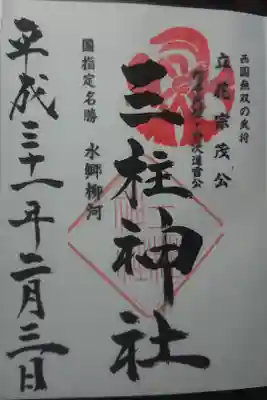 西国無双の武将
立花宗茂公
三柱神社
国指定名勝
水郷柳河
平成三十一年二月三日